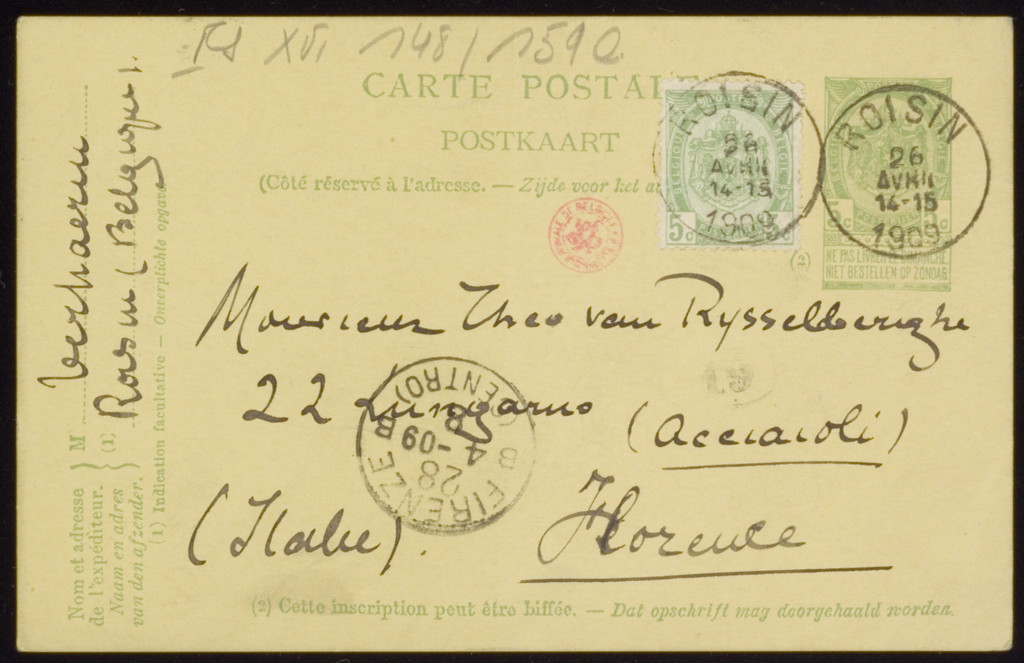 FS XVI 148/1590
CARTE POSTALE
POSTKAART
(Côté réservé à l'adresse. — Zijde voor het
ROISIN
26
AVRIL
14-15
1909
BELGIQUE
5c
5c
ROISIN
26
AVRIL
14-15
1909
5c
NE PAS LIVRER LE DIMANCHE
NIET BESTELLEN OP ZONDAG
(2)
Monsieur Theo van Rysselberghe
22 Lungarno
(Acciaioli)
Florence
(Italie).
FIRENZE
(CENTRO)
28
4-09
15
(2) Cette inscription peut être biffée. — Dat opschrift mag doorgehaald worden.
Nom et adresse
de l'expéditeur.
Naam en adres
van den afzender.
M Verhaeren
(1) Roisin (Belgique).
(1) Indication facultative — Onverplichte opgave